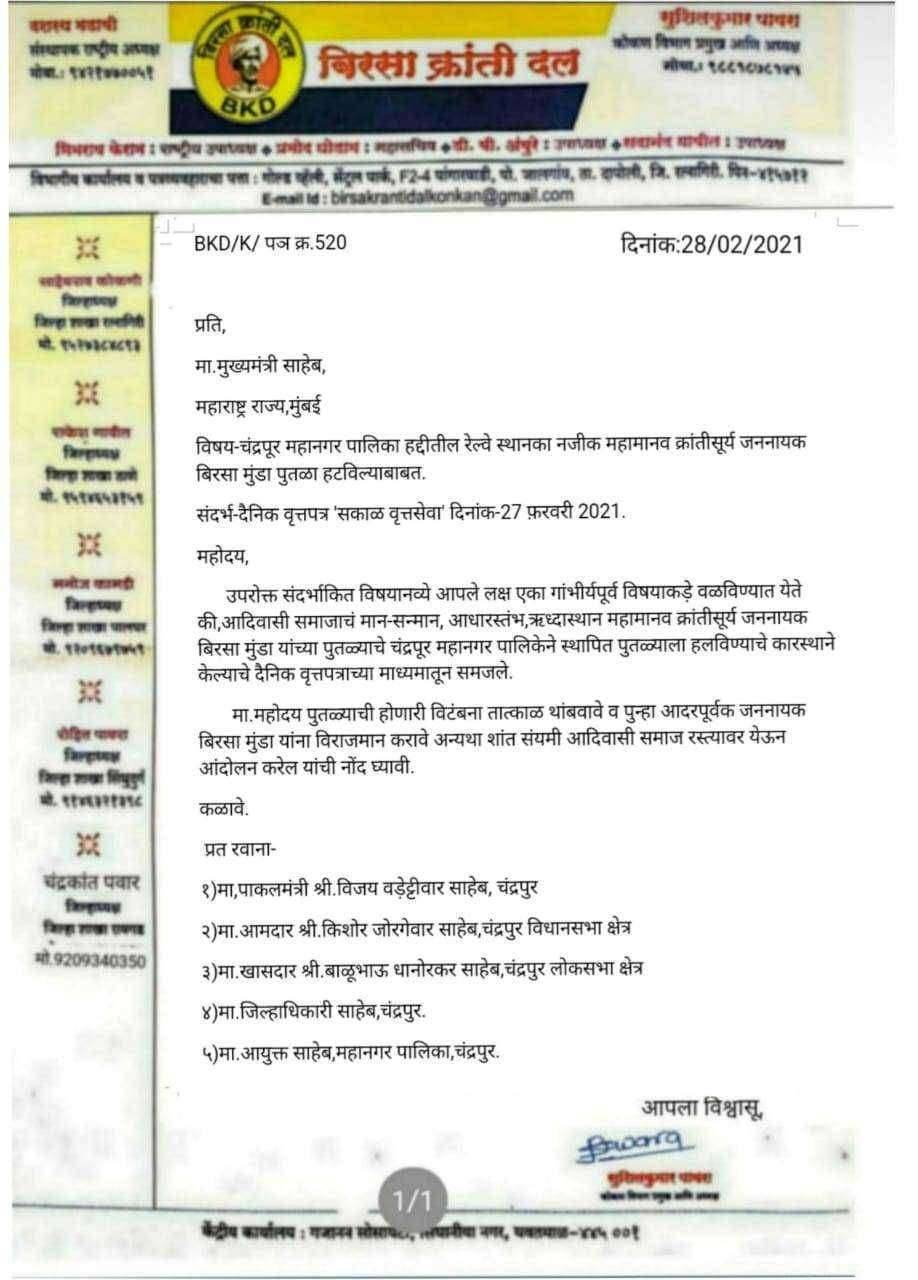 दशरथ मडावी
संस्थापक राष्ट्रीय अध्यक्ष
मोबा.:
बिरसा क्रांती दल
BKD
बिरसा क्रांती दल
सुशिलकुमार पावरा
कोकण विभाग प्रमुख आणि अध्यक्ष
मोबा.:
राष्ट्रीय उपाध्यक्ष ◆ प्रमोद घोडाम : महासचिव ◆ डी. बी. अंबुरे : उपाध्यक्ष ◆ : उपाध्यक्ष
विभागीय कार्यालय व पत्रव्यवहाराचा पत्ता : गोल्ड व्हॅली, सेंट्रल पार्क, F2-4 पांगारवाडी, पो. जालगांव, ता. दापोली, जि. रत्नागिरी. पिन-४१५७१२
E-mail Id : birsakrantidalkonkan@gmail.com
BKD/K/ पत्र क्र.520
दिनांक:28/02/2021
प्रति,
मा.मुख्यमंत्री साहेब,
महाराष्ट्र राज्य,मुंबई
विषय-चंद्रपूर महानगर पालिका हद्दीतील रेल्वे स्थानका नजीक महामानव क्रांतीसूर्य जननायक
बिरसा मुंडा पुतळा हटविल्याबाबत.
संदर्भ-दैनिक वृत्तपत्र 'सकाळ वृत्तसेवा' दिनांक-27 फ़रवरी 2021.
महोदय,
उपरोक्त संदर्भाकित विषयानव्ये आपले लक्ष एका गांभीर्यपूर्व विषयाकडे वळविण्यात येते
की,आदिवासी समाजाचं मान-सन्मान, आधारस्तंभ,ऋध्दास्थान महामानव क्रांतीसूर्य जननायक
बिरसा मुंडा यांच्या पुतळ्याचे चंद्रपूर महानगर पालिकेने स्थापित पुतळ्याला हलविण्याचे कारस्थाने
केल्याचे दैनिक वृत्तपत्राच्या माध्यमातून समजले.
मा.महोदय पुतळ्याची होणारी विटंबना तात्काळ थांबवावे व पुन्हा आदरपूर्वक जननायक
बिरसा मुंडा यांना विराजमान करावे अन्यथा शांत संयमी आदिवासी समाज रस्त्यावर येऊन
आंदोलन करेल यांची नोंद घ्यावी.
कळावे.
प्रत रवाना-
१)मा,पाकलमंत्री श्री.विजय वड़ेट्टीवार साहेब, चंद्रपुर
२)मा.आमदार श्री.किशोर जोरगेवार साहेब,चंद्रपुर विधानसभा क्षेत्र
३)मा.खासदार श्री.बाळूभाऊ धानोरकर साहेब,चंद्रपुर लोकसभा क्षेत्र
४)मा.जिल्हाधिकारी साहेब,चंद्रपुर.
५)मा.आयुक्त साहेब,महानगर पालिका,चंद्रपुर.
आपला विश्वासू,
सुशिलकुमार पावरा
कोकण विभाग प्रमुख आणि अध्यक्ष
साहेबराव कोकणी
जिल्हाध्यक्ष
जिल्हा शाखा रत्नागिरी
मो.
जिल्हाध्यक्ष
जिल्हा शाखा ठाणे
मो.
मनोज कामडी
जिल्हाध्यक्ष
जिल्हा शाखा पालघर
मो.
रोहित पावरा
जिल्हाध्यक्ष
जिल्हा शाखा सिंधुदुर्ग
मो.
चंद्रकांत पवार
जिल्हाध्यक्ष
जिल्हा शाखा रायगड
मो.9209340350
1/1
केंद्रीय कार्यालय : गजानन नगर, यवतमाळ-४४५ ००१